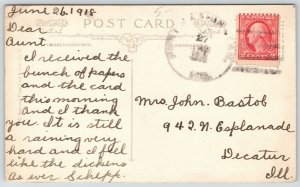 June 26, 1918
POST CARD
Dear
Aunt
I received the
bunch of papers
and the card
this morning
and I thank
you. It is still
a raining very
hard and I feel
like the dickens
as ever Schepp.
27
Mrs. John Bastob
942 N. Esplanade
Decatur
Ill.